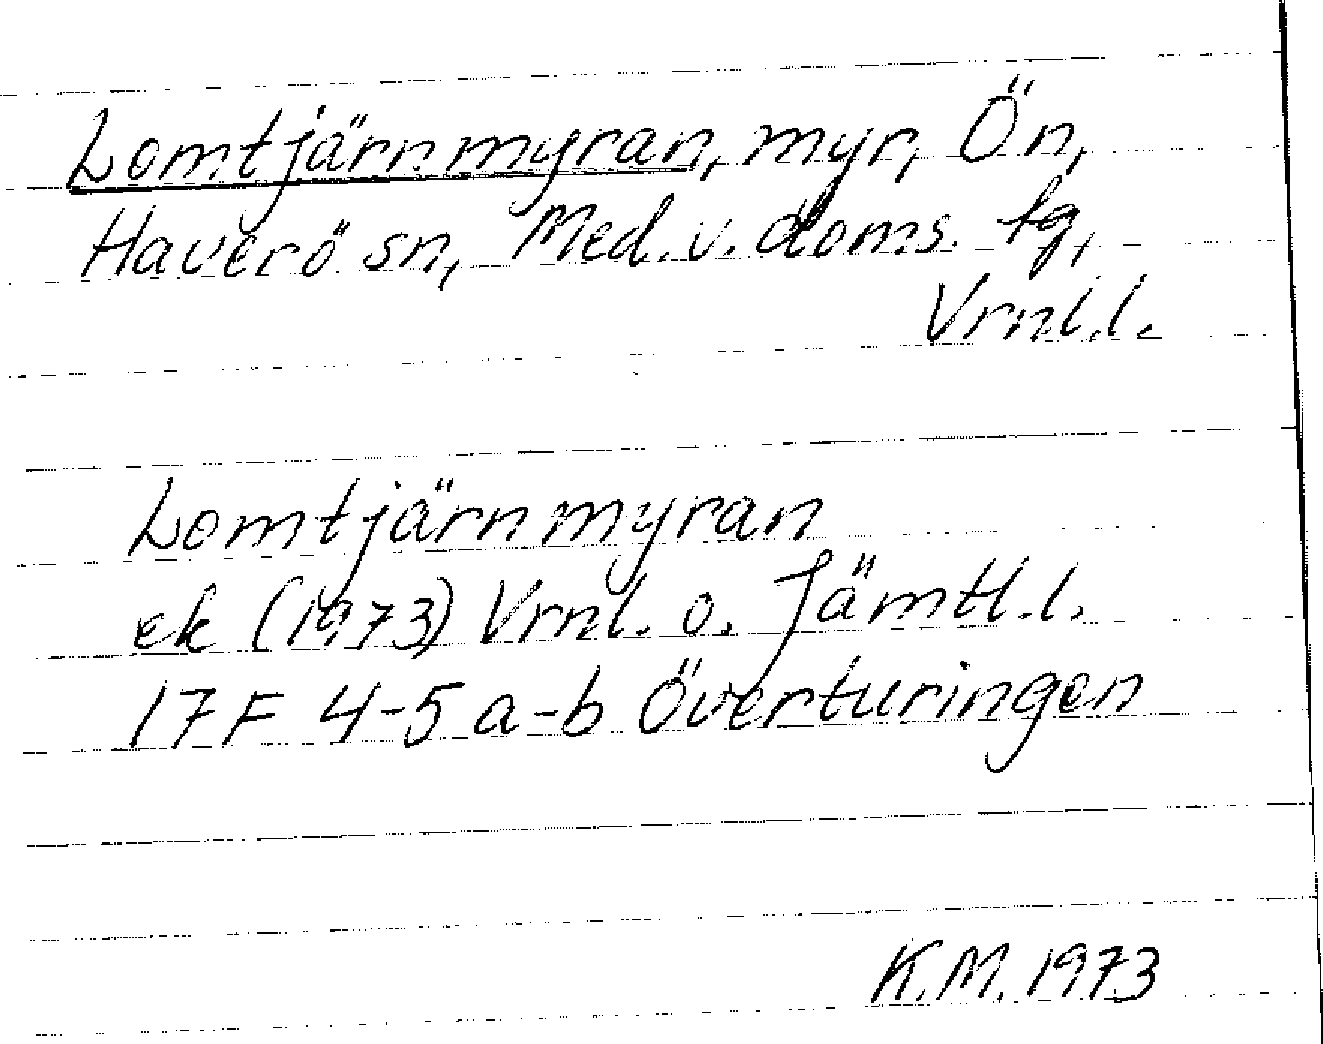 Lomtjärnmyran, myr, Ön,
Haverö sn, Med. v. doms. tg,
Vrml.l.
Lomtjärnmyran
ek (1973) Vrnl. o. Jämtl.l.
17F 4-5 a-b Överturingen
K.M. 1973